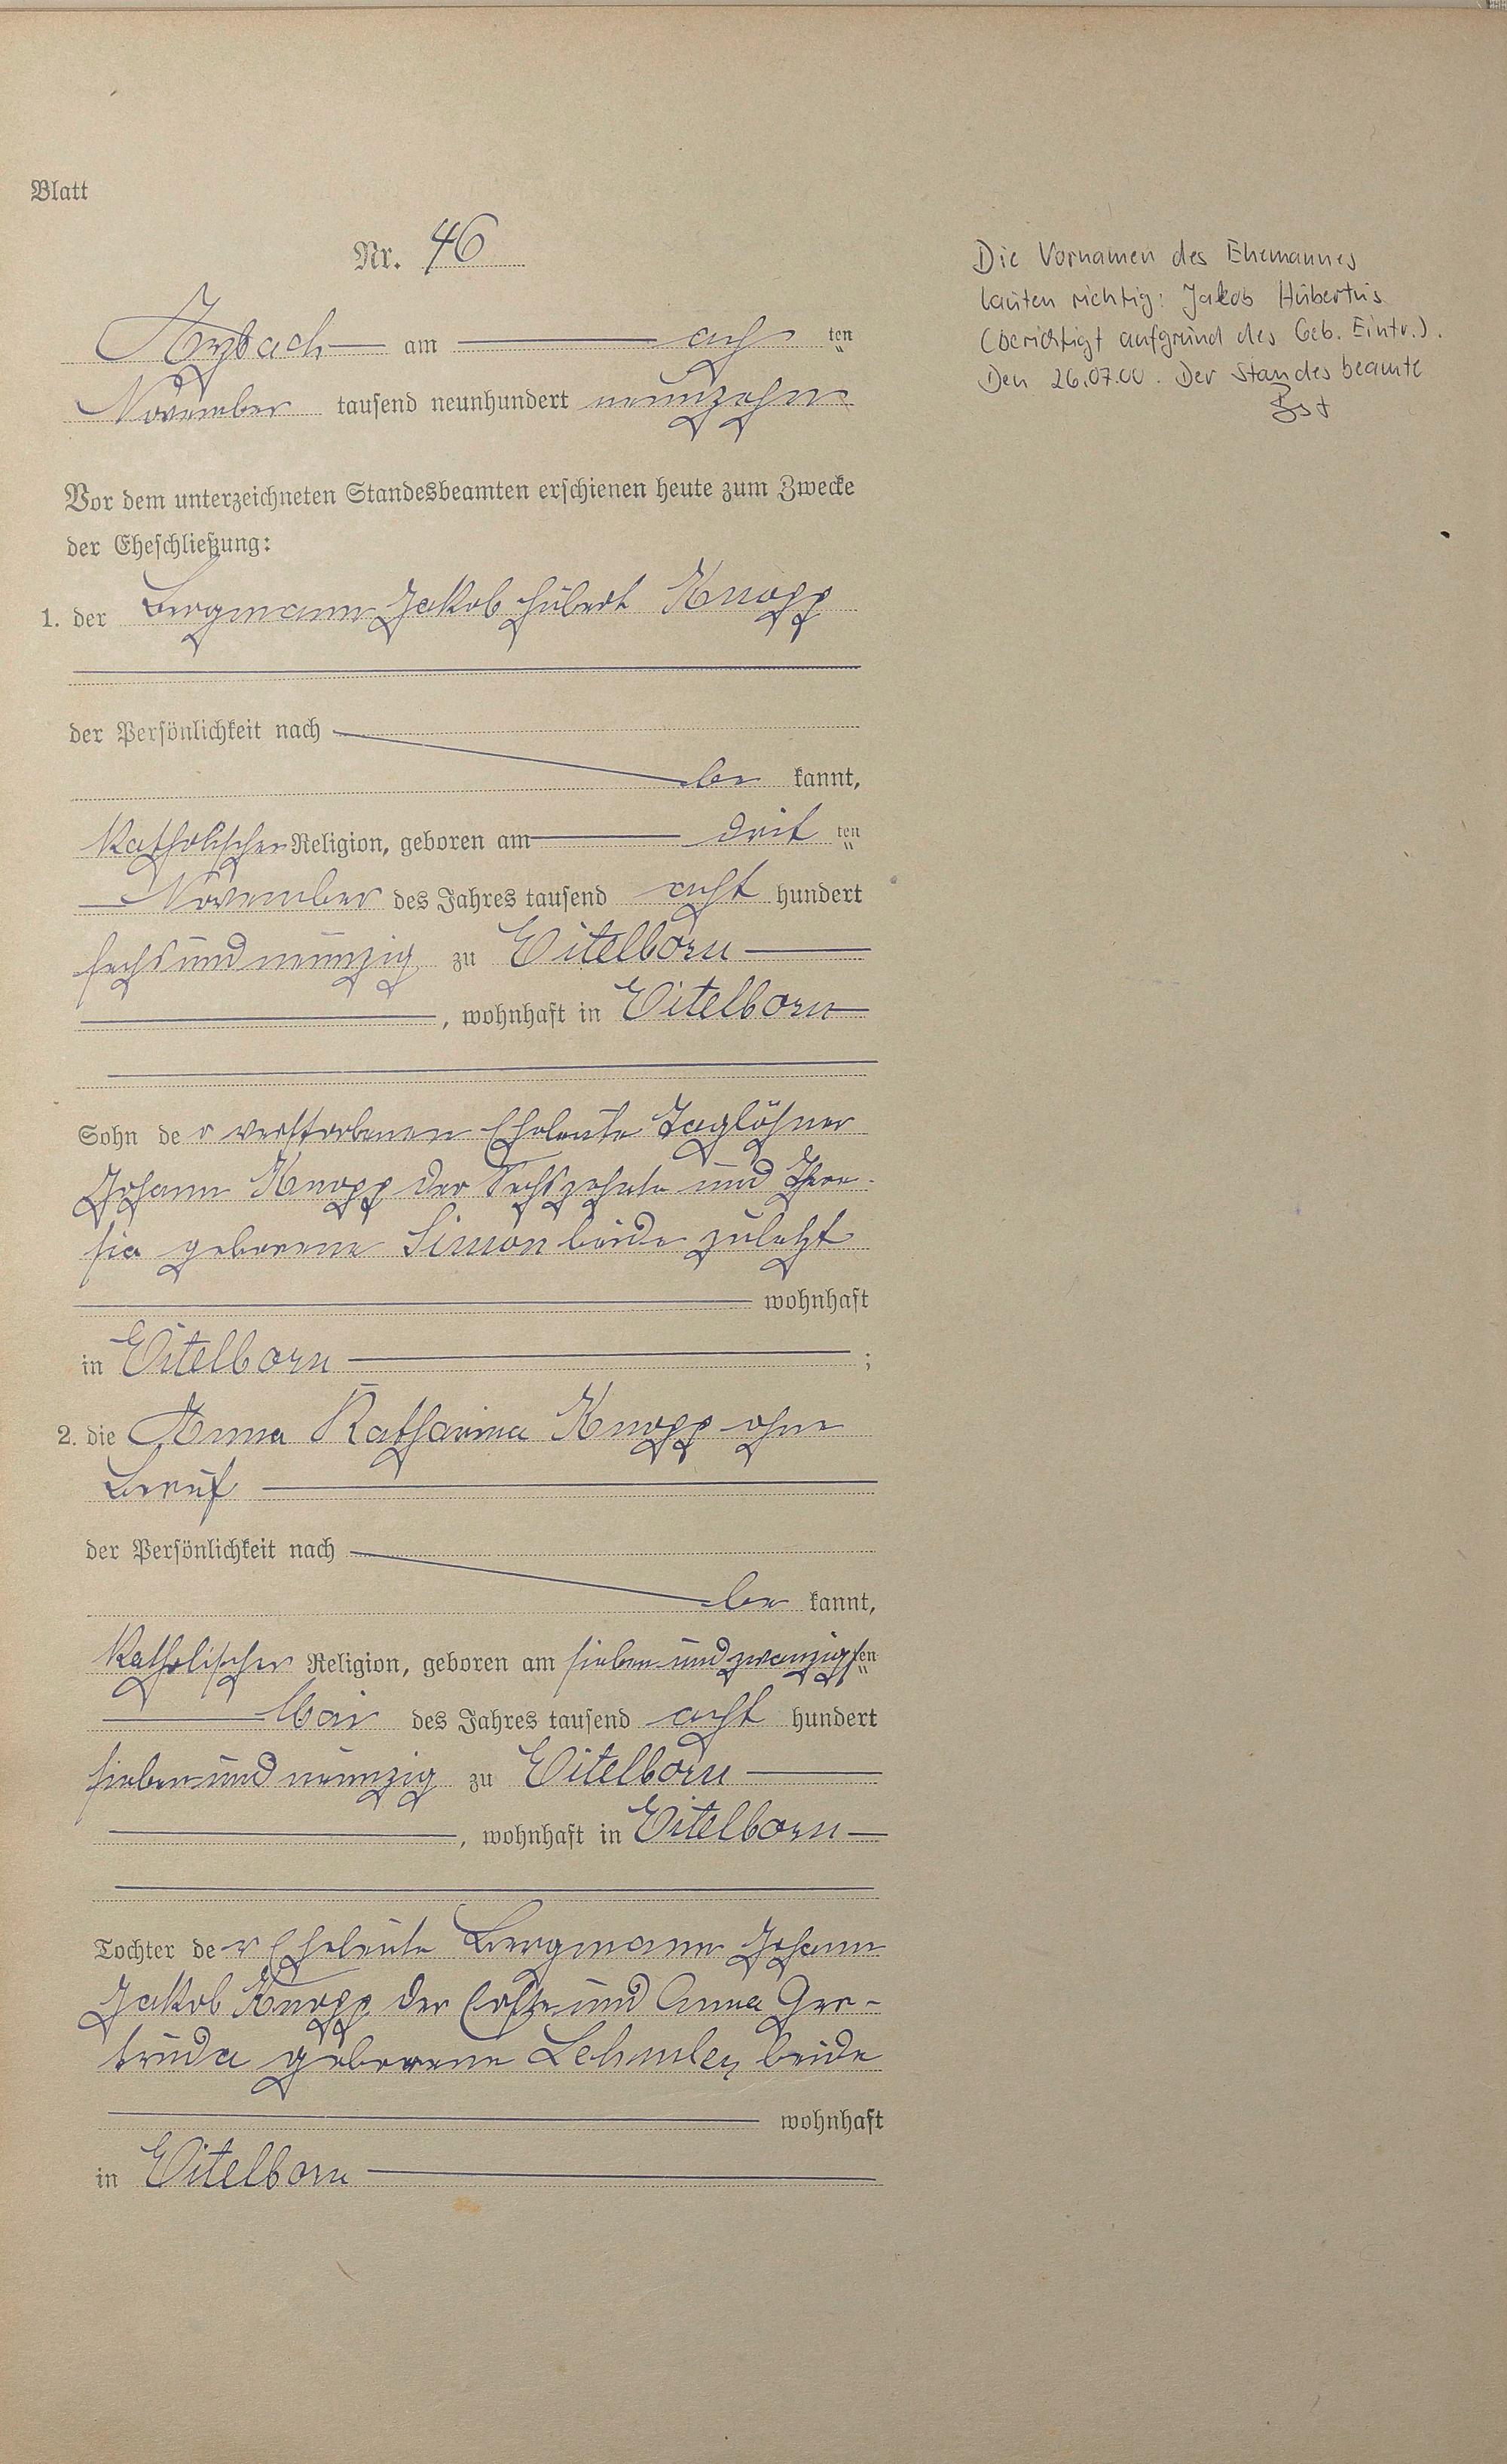 Blatt
Nr. 46
Arzbach am ach ten
November tausend neunhundert neunzehn
Vor dem unterzeichneten Standesbeamten erschienen heute zum Zwecke
der Eheschließung:
1. der Bergmann Jakob Hubert Knopp
der Persönlichkeit nach
be kannt,
katholischer Religion, geboren am drit ten
November des Jahres tausend acht hundert
sechsundneunzig zu Eitelborn
, wohnhaft in Eitelborn
Sohn de r verstorbenen Eheleute Taglöhner
Johann Knopp der Sechszehnte und There-
sia geborene Simon beide zuletzt
wohnhaft
in Eitelborn ;
2. die Anna Katharina Knopp ohne
Beruf
der Persönlichkeit nach
be kannt,
katholischer Religion, geboren am siebenundzwanzigsten
Mai des Jahres tausend acht hundert
siebenundneunzig zu Eitelborn
, wohnhaft in Eitelborn
Tochter de r Eheleute Bergmann Johann
Jakob Knopp der Erste und Anna Ger-
truda geborene beide
wohnhaft
in Eitelborn
Die Vornamen des Ehemannes
lauten richtig: Jakob Hubertus
(berichtigt aufgrund des Geb. Eintr.).
Den 26.07.00. Der Standesbeamte